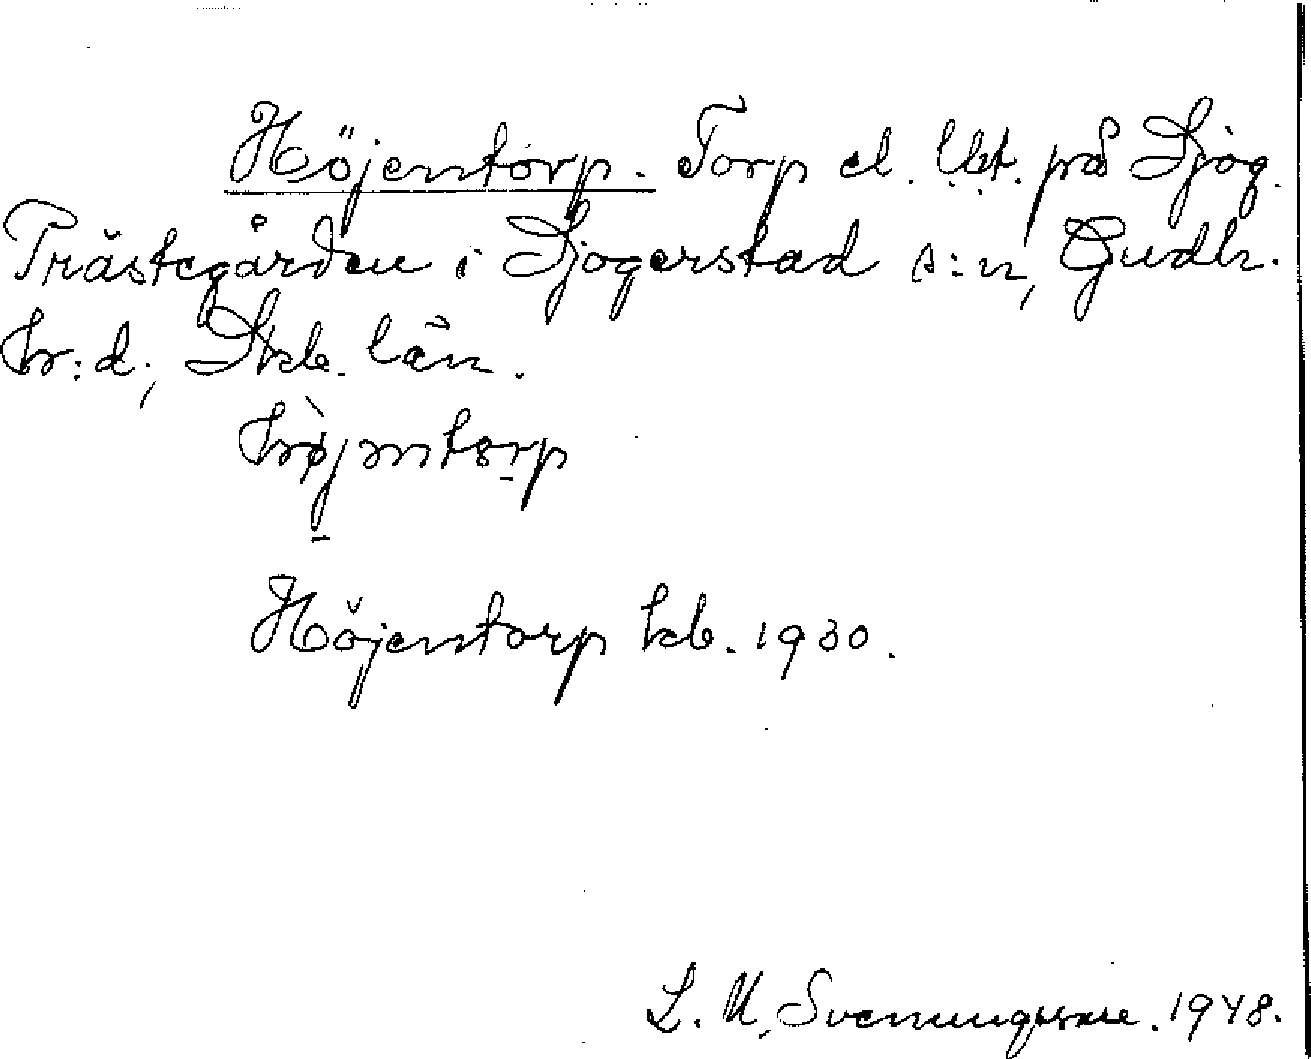 Höjentorp. Torp el. lht. på Sjog.
Prästegården i Sjogerstad s:n, Gudh.
hr:d, Skb. län.
hø̀jəntorp
Höjentorp kb. 1930.
L. M. Svenungsson. 1948.